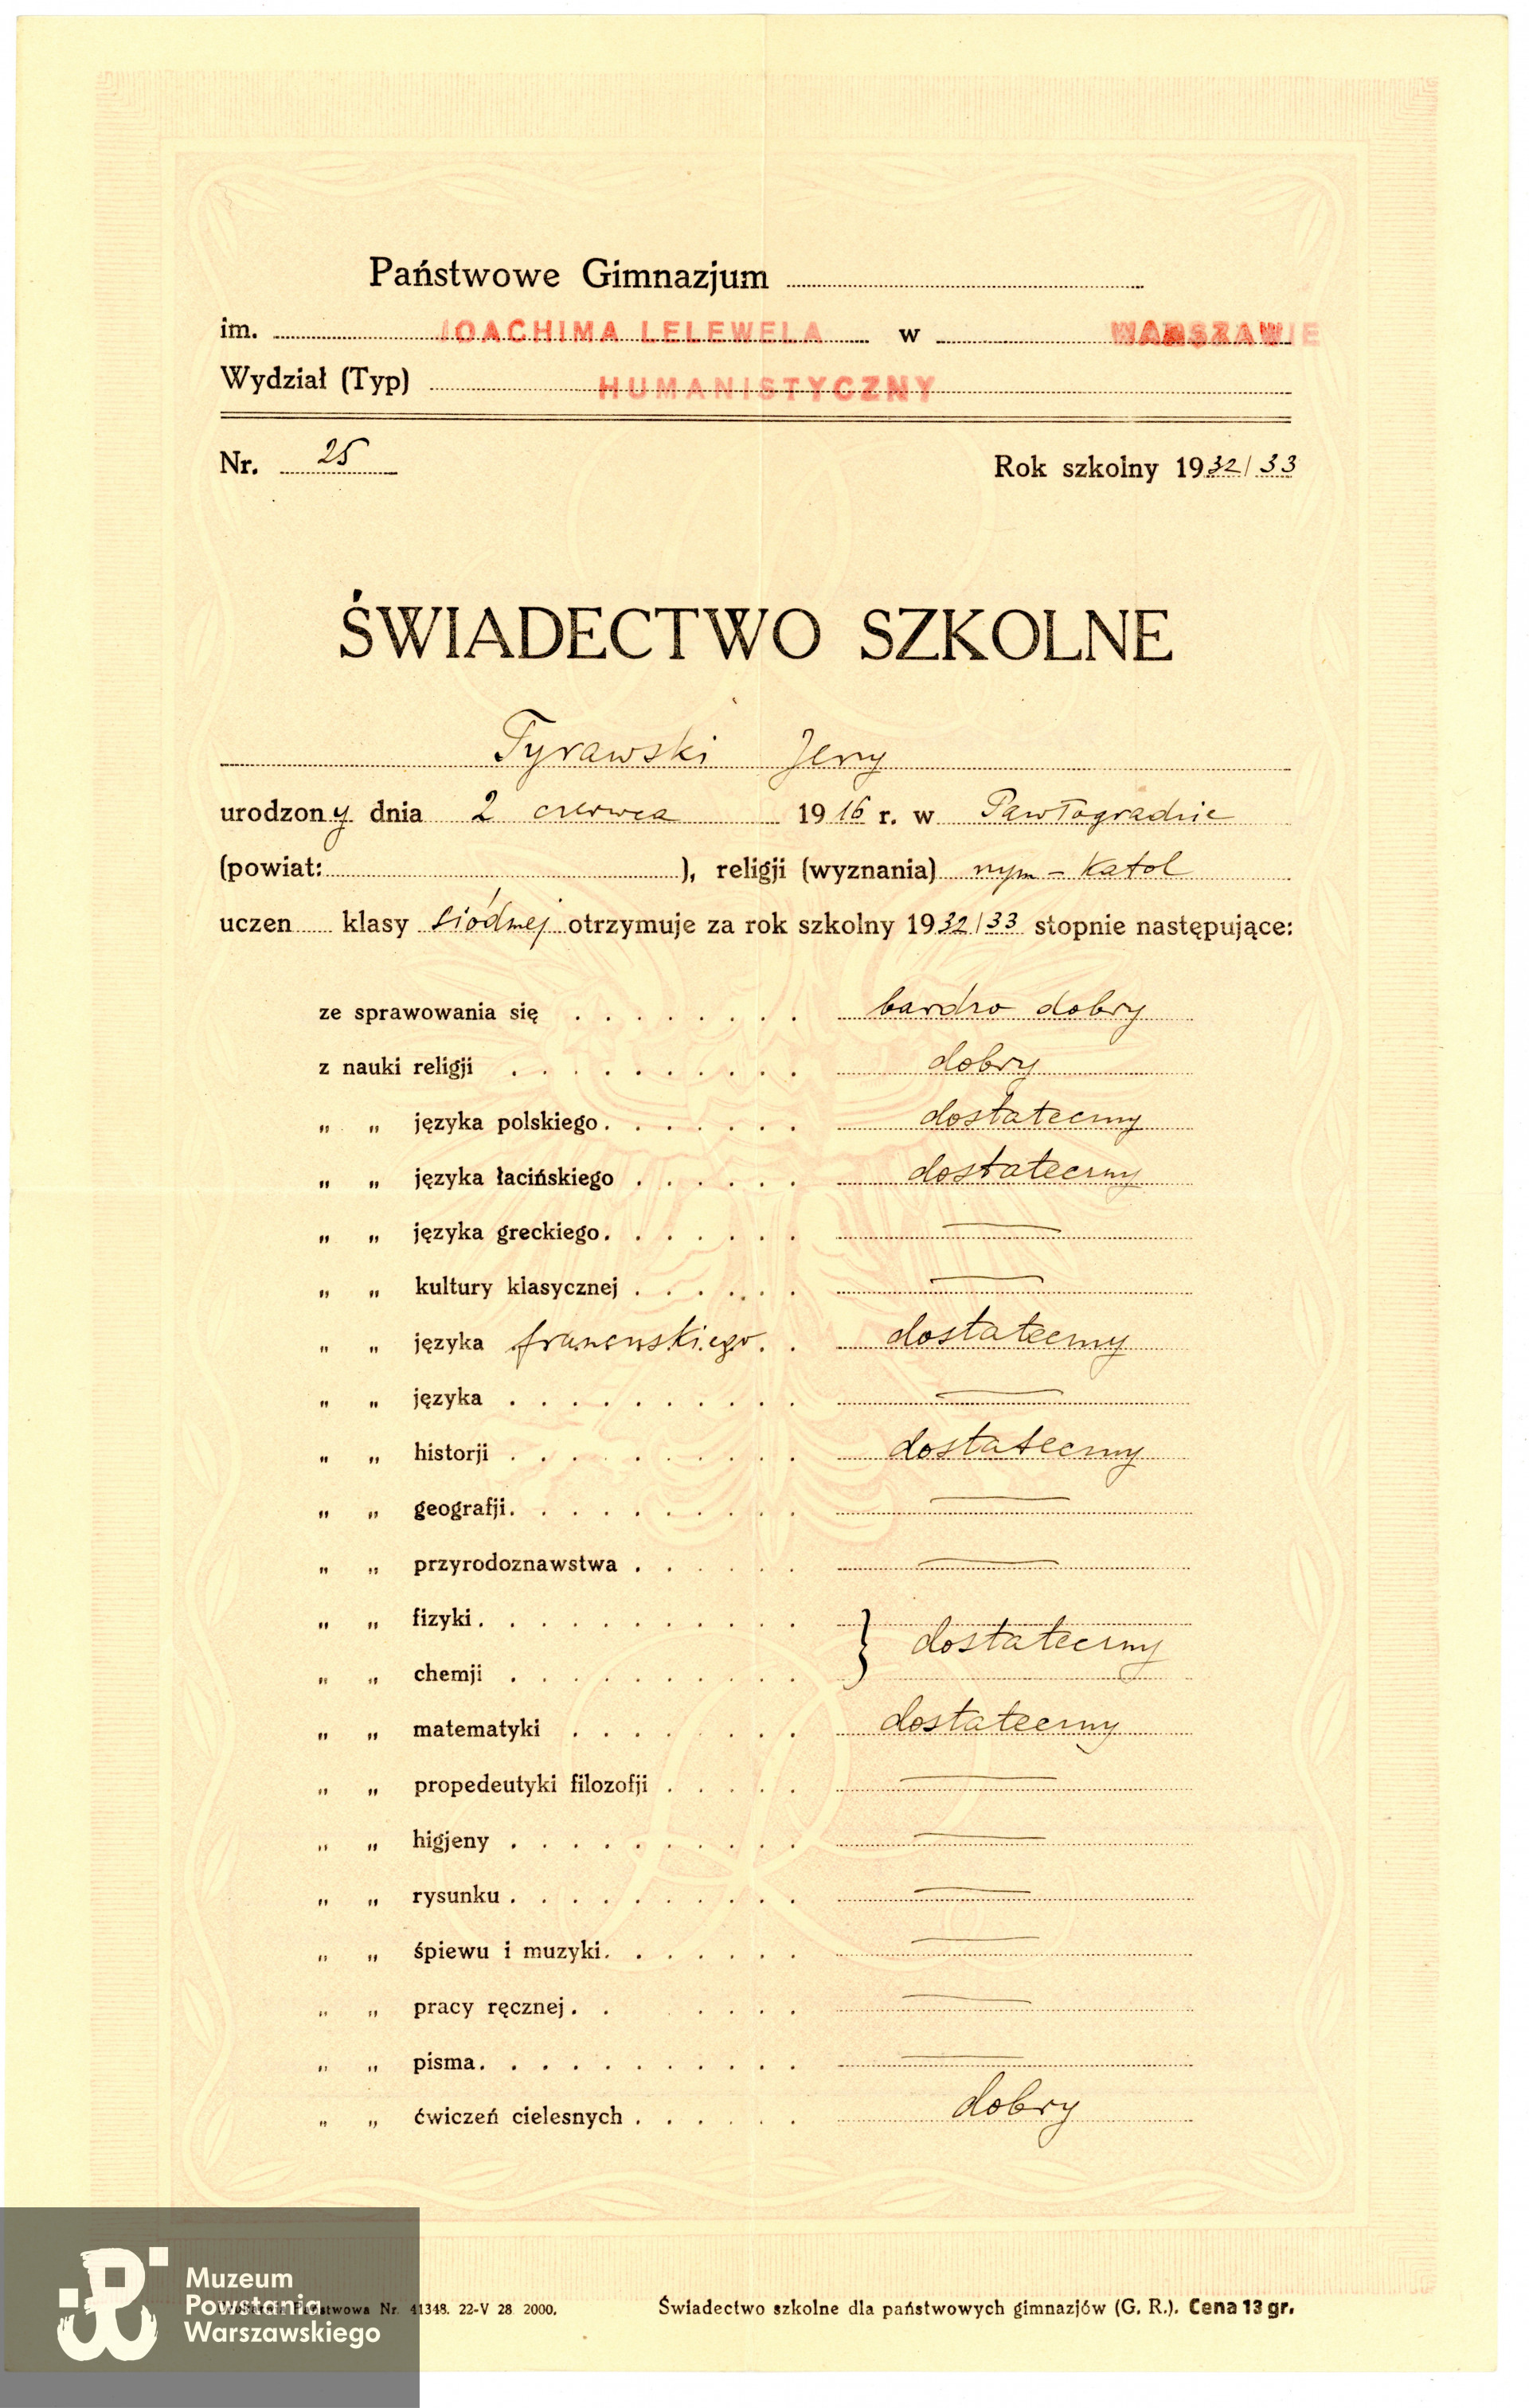 Państwowe Gimnazjum
im. JOACHIMA LELEWELA w WARSZAWIE
Wydział (Typ) HUMANISTYCZNY
Nr. 25 Rok szkolny 1932/33
ŚWIADECTWO SZKOLNE
Tyrawski Jerzy
urodzony dnia 2 czerwca 1916 r. w Pawłogradzie
(powiat: ), religji (wyznania) rzym-katol
uczen klasy siódmej otrzymuje za rok szkolny 1932/33 stopnie następujące:
ze sprawowania się . . . . . . . . bardzo dobry
z nauki religji . . . . . . . . . . dobry
„ „ języka polskiego . . . . . . . dostateczny
„ „ języka łacińskiego . . . . . . dostateczny
„ „ języka greckiego . . . . . . . —
„ „ kultury klasycznej . . . . . . —
„ „ języka francuskiego . . dostateczny
„ „ języka . . . . . . . . . . —
„ „ historji . . . . . . . . . . dostateczny
„ „ geografji . . . . . . . . . . —
„ „ przyrodoznawstwa . . . . . . —
„ „ fizyki . . . . . . . . . . . } dostateczny
„ „ chemji . . . . . . . . . .
„ „ matematyki . . . . . . . . dostateczny
„ „ propedeutyki filozofji . . . . . —
„ „ higjeny . . . . . . . . . . —
„ „ rysunku . . . . . . . . . . —
„ „ śpiewu i muzyki . . . . . . . —
„ „ pracy ręcznej . . . . . . —
„ „ pisma . . . . . . . . . . . —
„ „ ćwiczeń cielesnych . . . . . . dobry
Państwowa Nr. 41348. 22-V 28. 2000. Świadectwo szkolne dla państwowych gimnazjów (G. R.). Cena 13 gr.
Muzeum
Powstania
Warszawskiego